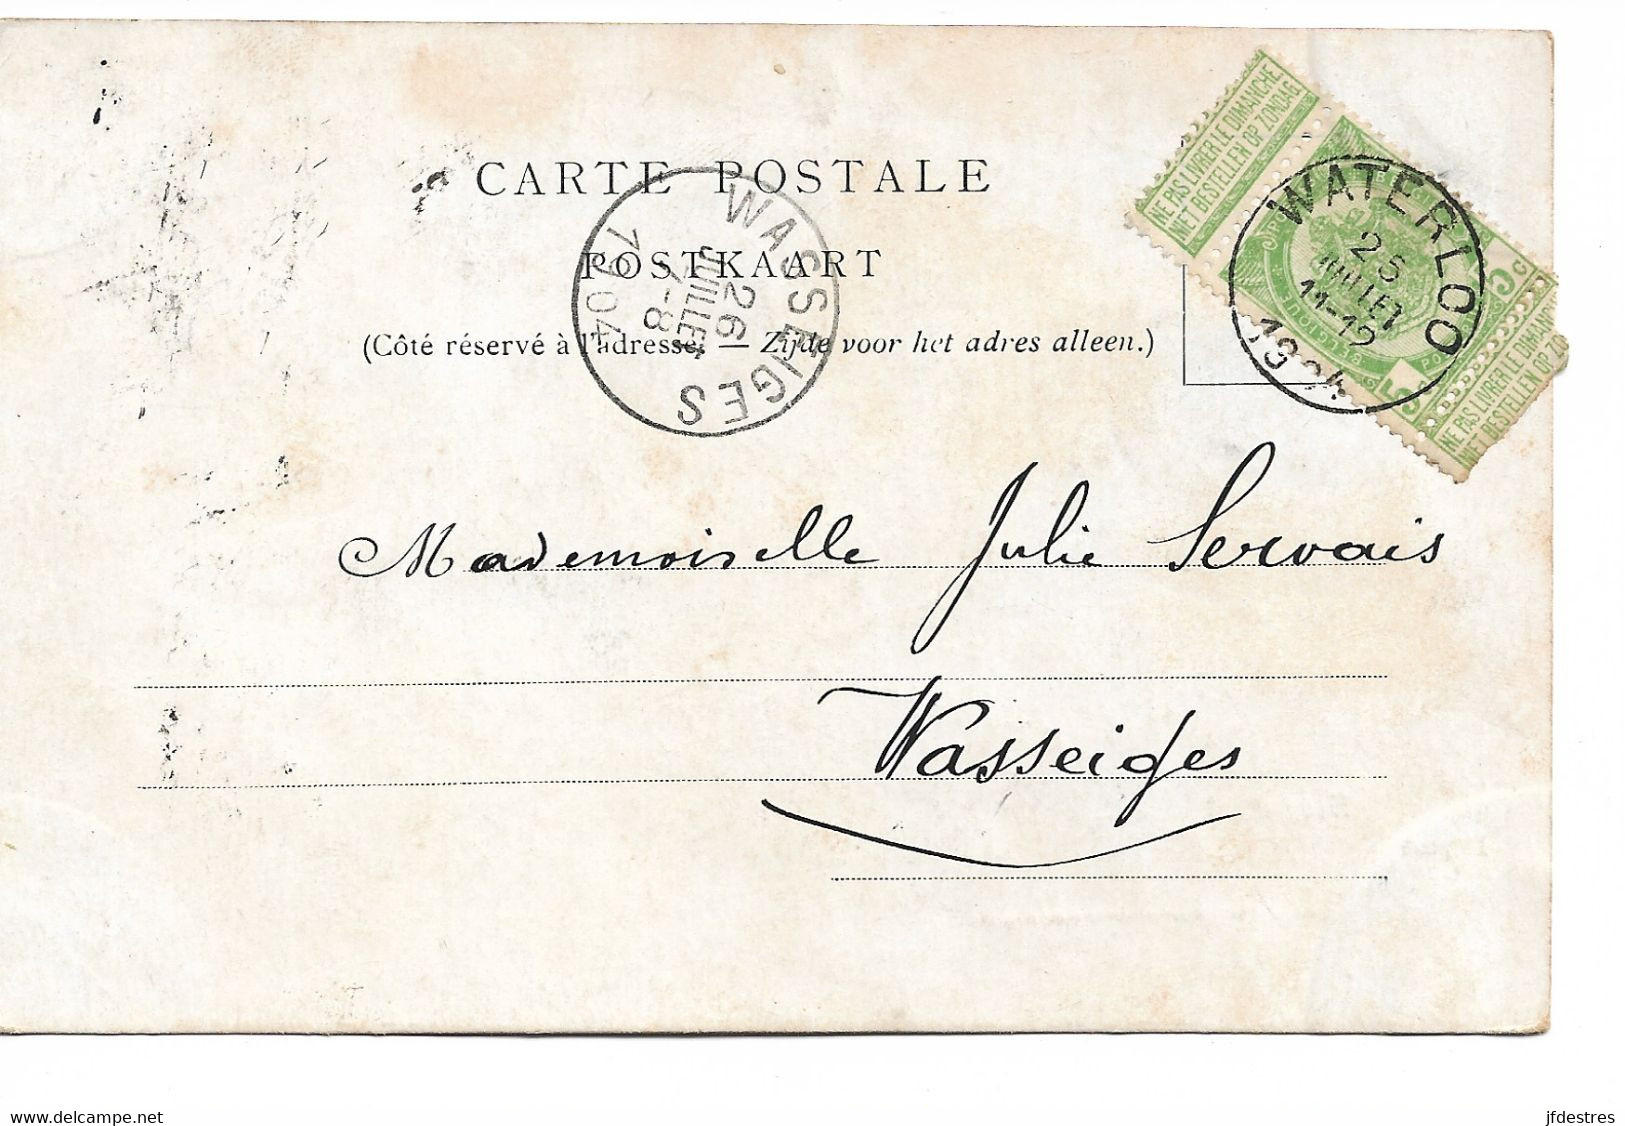 CARTE POSTALE
POSTKAART
(Côté réservé à l'adresse. — Zijde voor het adres alleen.)
WASSEIGES
26
JUILLET
7-8
1904
NE PAS LIVRER LE DIMANCHE
NIET BESTELLEN OP ZONDAG
WATERLOO
25
JUILLET
11-12
1904
BELGIQUE
5 c
5
NE PAS LIVRER LE DIMANCHE
NIET BESTELLEN OP ZO
Mademoiselle Julie Servais
Wasseiges
delcampe.net
jfdestres